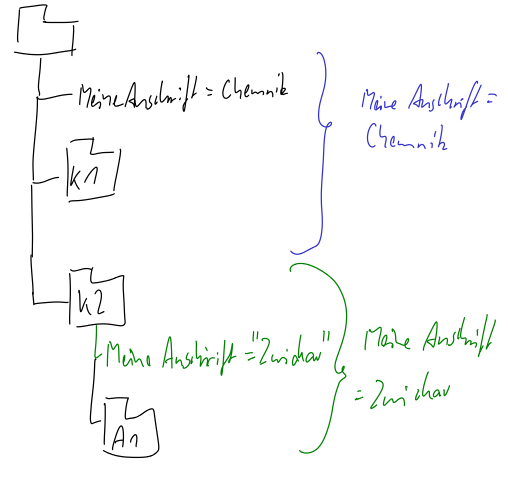 Meine Anschrift = Chemnitz
Meine Anschrift =
Chemnitz
K1
K2
Meine Anschrift = "Zwickau"
Meine Anschrift
= Zwickau
A1